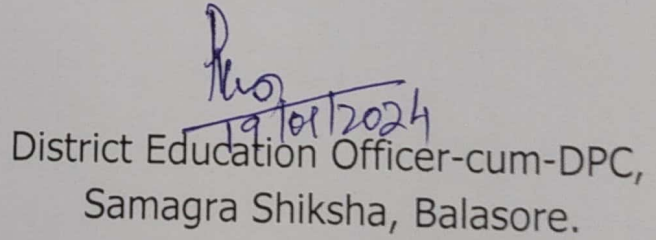 19/01/2024
District Education Officer-cum-DPC,
Samagra Shiksha, Balasore.